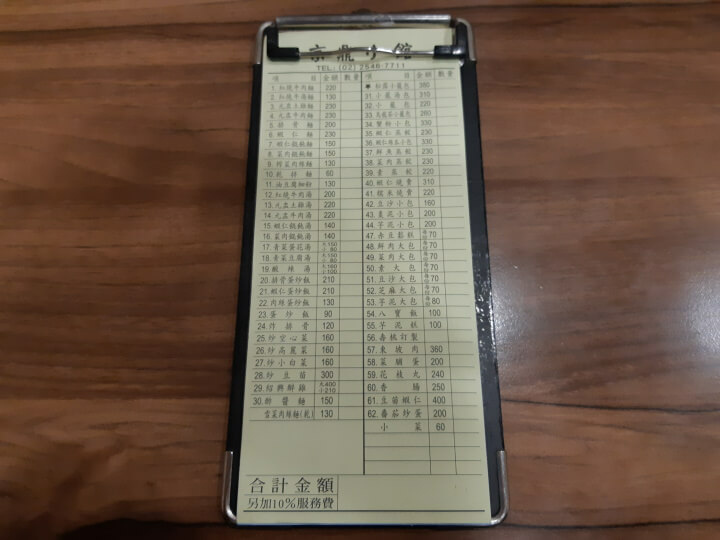 京鼎小館
TEL: (02) 2546-7711
項 目 金額 數量
1. 紅燒牛肉麵 220
2. 紅燒牛湯麵 130
3. 元盅土雞麵 230
4. 元盅牛肉麵 230
5. 排骨麵 200
6. 蝦仁麵 230
7. 蝦仁餛飩麵 150
8. 菜肉餛飩麵 150
9. 榨菜肉絲麵 130
10. 乾拌麵 60
11. 油豆腐細粉 130
12. 紅燒牛肉湯 200
13. 元盅土雞湯 220
14. 元盅牛肉湯 220
15. 蝦仁餛飩湯 140
16. 菜肉餛飩湯 140
17. 青菜蛋花湯 大150 小 80
18. 青菜豆腐湯 大150 小 80
19. 酸辣湯 大160 小100
20. 排骨蛋炒飯 210
21. 蝦仁蛋炒飯 210
22. 肉絲蛋炒飯 130
23. 蛋炒飯 90
24. 炸排骨 120
25. 炒空心菜 160
26. 炒高麗菜 160
27. 炒小白菜 160
28. 炒豆苗 300
29. 紹興醉雞 大400 小210
30. 炸醬麵 150
雪菜肉絲麵(乾) 130
項 目 金額 數量
松露小籠包
31. 小籠湯包 310
32. 小籠包 220
33. 小籠包 260
34. 蟹粉小包 330
35. 蝦仁蒸餃 230
36. 230
37. 鮮魚蒸餃 230
38. 菜肉蒸餃 230
39. 素蒸餃 220
40. 蝦仁燒賣 310
41. 糯米燒賣 220
42. 豆沙小包 160
43. 棗泥小包 200
44. 芋泥小包 200
47. 赤豆鬆糕 70
48. 鮮肉大包 70
49. 菜肉大包 70
50. 素大包 70
51. 豆沙大包 70
52. 芝麻大包 70
53. 芋泥大包 80
54. 八寶飯 100
55. 芋泥糕 100
56. 壽桃訂製
57. 東坡肉 360
58. 菜脯蛋 200
59. 花枝丸 240
60. 香腸 250
61. 豆苗蝦仁 400
62. 番茄炒蛋 200
小菜 60
合計金額
另加10%服務費